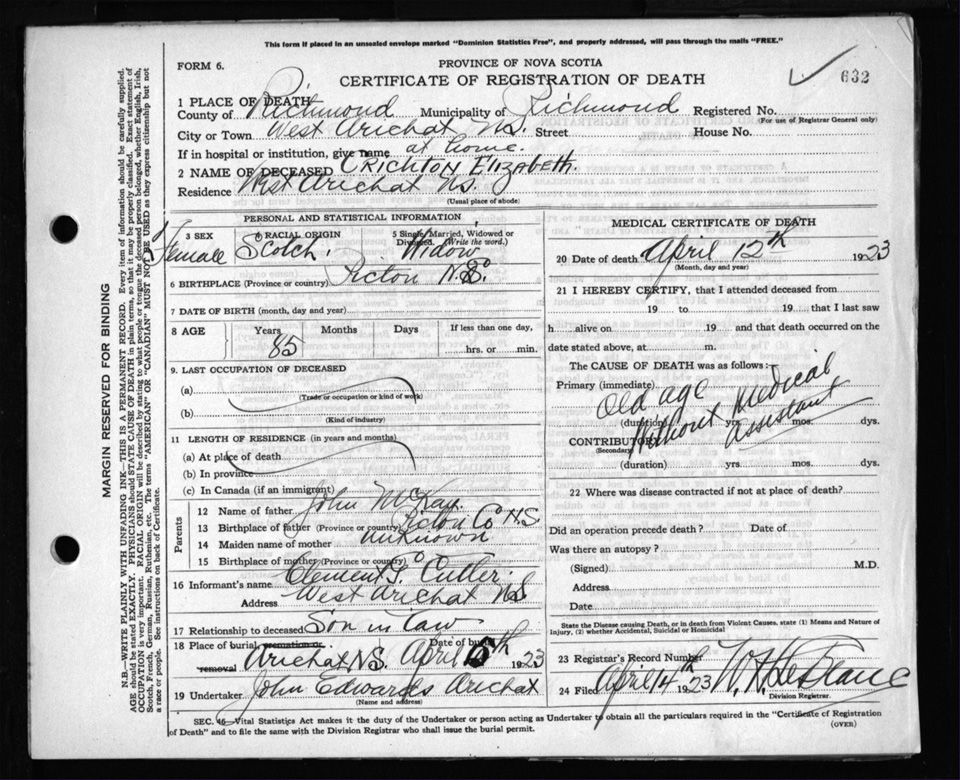 This form if placed in an unsealed envelope marked "Dominion Statistics Free", and properly addressed, will pass through the mails "FREE."
FORM 6.
PROVINCE OF NOVA SCOTIA
CERTIFICATE OF REGISTRATION OF DEATH
632
1 PLACE OF DEATH
County of Richmond Municipality of Richmond Registered No.
(For use of Registrar General only)
City or Town West Arichat N.S. Street House No.
If in hospital or institution, give name at home.
2 NAME OF DECEASED Crichton Elizabeth.
Residence West Arichat Ns.
(Usual place of abode)
PERSONAL AND STATISTICAL INFORMATION
3 SEX 4 RACIAL ORIGIN 5 Single, Married, Widowed or Divorced. (Write the word.)
Female Scotch. Widow
6 BIRTHPLACE (Province or country) Picton N.S.
7 DATE OF BIRTH (month, day and year)
8 AGE Years Months Days If less than one day,
85 hrs. or min.
9. LAST OCCUPATION OF DECEASED
(a)
(Trade or occupation or kind of work)
(b)
(Kind of industry)
11 LENGTH OF RESIDENCE (in years and months)
(a) At place of death
(b) In province
(c) In Canada (if an immigrant)
Parents
12 Name of father John McKay
13 Birthplace of father (Province or country) Picton Co N.S
14 Maiden name of mother unknown
15 Birthplace of mother (Province or country)
16 Informant's name Clement Cutler
Address West Arichat NS
17 Relationship to deceased Son in law
18 Place of burial, cremation or removal Arichat, NS. Date of burial April 1923
19 Undertaker John Edwards Arichat
(Name and address)
MEDICAL CERTIFICATE OF DEATH
20 Date of death April 12th 1923
(Month, day and year)
21 I HEREBY CERTIFY, that I attended deceased from
19 to 19 that I last saw
h alive on 19 and that death occurred on the
date stated above, at m.
The CAUSE OF DEATH was as follows:
Primary (immediate) Old age
(duration) yrs. mos. dys.
Without Medical Assistant
CONTRIBUTORY
(Secondary)
(duration) yrs. mos. dys.
22 Where was disease contracted if not at place of death?
Did an operation precede death? Date of
Was there an autopsy?
(Signed) M.D.
Address
Date
State the Disease causing Death, or in death from Violent Causes, state (1) Means and Nature of Injury, (2) whether Accidental, Suicidal or Homicidal
23 Registrar's Record Number
24 Filed April 14th 1923
Division Registrar.
SEC. 46—Vital Statistics Act makes it the duty of the Undertaker or person acting as Undertaker to obtain all the particulars required in the "Certificate of Registration
of Death" and to file the same with the Division Registrar who shall issue the burial permit.
(OVER)
MARGIN RESERVED FOR BINDING
N.B.—WRITE PLAINLY WITH UNFADING INK—THIS IS A PERMANENT RECORD. Every item of information should be carefully supplied.
AGE should be stated EXACTLY. PHYSICIANS should STATE CAUSE OF DEATH in plain terms, so that it may be properly classified. Exact statement of
OCCUPATION is very important. RACIAL ORIGIN will be described by stating to what people or tongue the deceased person belonged, whether English, Irish,
Scotch, French, German, Russian, Ruthenian, etc. The terms "AMERICAN" or "CANADIAN" MUST NOT BE USED as they express citizenship but not
a race or people. See instructions on back of Certificate.